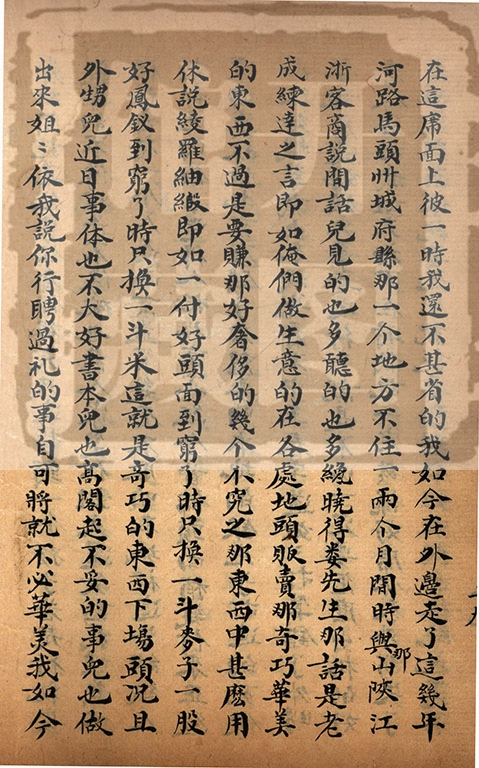 在這席面上彼一時我還不甚省的我如今在外邊走了這幾年
河路馬頭州城府縣那一个地方不住一兩个月閒時與那山陝江
浙客商說閒話兒見的也多聽的也多纔曉得婁先生那話是老
成練達之言即如俺們做生意的在各處地頭販賣那奇巧華美
的東西不過是要賺那好奢侈的幾个不究之那東西中甚麼用
休說綾羅紬緞即如一付好頭面到窮了時只換一斗麥子一股
好鳳釵到窮了時只換一斗米這就是奇巧的東西下場頭况且
外甥兒近日事体也不大好書本兒也高閣起不妥的事兒也做
出來姐〻依我說你行聘過礼的事自可將就不必華美我如今